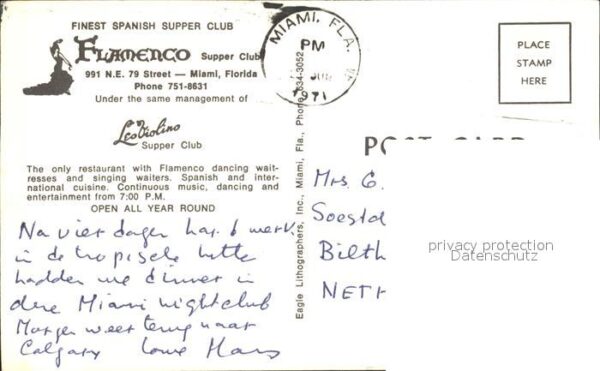 FINEST SPANISH SUPPER CLUB
FLAMENCO Supper Club
991 N.E. 79 Street — Miami, Florida
Phone 751-8631
Under the same management of
Les Violins
Supper Club
The only restaurant with Flamenco dancing wait-
resses and singing waiters. Spanish and inter-
national cuisine. Continuous music, dancing and
entertainment from 7:00 P.M.
OPEN ALL YEAR ROUND
Na vier dagen hard werk
in de tropische hitte
hadden we dinner in
deze Miami nightclub
Morgen weer terug naar
Calgary Hans
Eagle Lithographers, Inc., Miami, Fla., Phone 634-3052
MIAMI, FLA.
PM
1971
PLACE
STAMP
HERE
POST CARD
Mrs. G.
Soestd
Bilth
NETH
privacy protection
Datenschutz